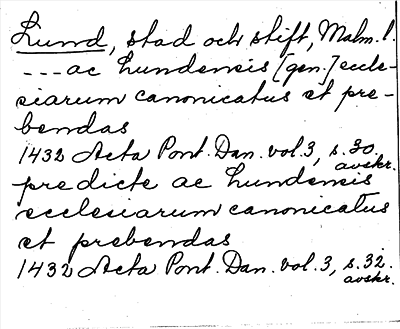 Lund, stad och stift, Malm. l.
---ac Lundensis [gen.] eccle-
siarum canonicatus et pre-
bendas
1432 Acta Pont. Dan. vol. 3, s. 30.
avskr.
predicte ac Lundensis
ecclesiarum canonicatus
et prebendas
1432 Acta Pont. Dan. vol. 3, s. 32.
avskr.